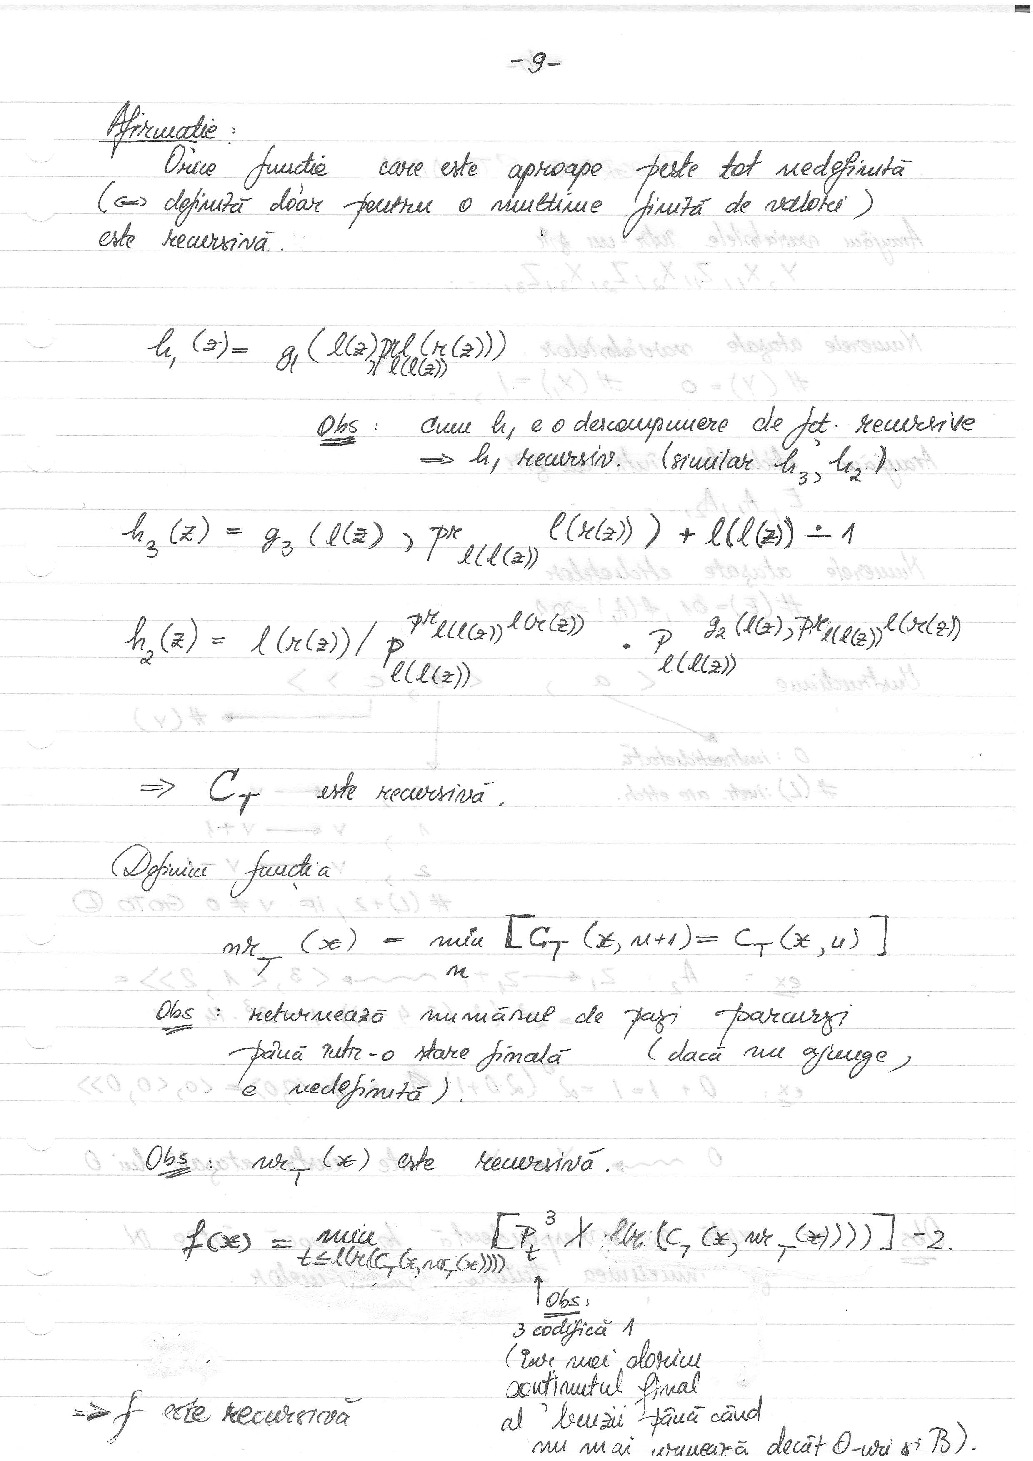 -9-
Afirmație:
Orice funcție care este aproape peste tot nedefinită
(⇔ definită doar pentru o mulțime finită de valori)
este recursivă.
h₁(z) = g₁(l(z), pr_{l(l(z))} l(r(z)))
Obs: Cum h₁ e o descompunere de fct. recursive
⇒ h₁ recursiv. (similar h₃, h₂).
h₃(z) = g₃(l(z), pr_{l(l(z))} l(r(z))) + l(l(z)) ∸ 1
h₂(z) = l(r(z)) / p_{l(l(z))}^{pr_{l(l(z))} l(r(z))} · p_{l(l(z))}^{g₂(l(z), pr_{l(l(z))} l(r(z))}
⇒ C_T este recursivă.
Definim funcția
nr_T(x) = min_n [C_T(x, n+1) = C_T(x, n)]
Obs: returnează numărul de pași parcurși
până într-o stare finală (dacă nu ajunge,
e nedefinită).
Obs: nr_T(x) este recursivă.
f(x) = min_{t≤l(r(C_T(x, nr_T(x))))} [p_t³ ∤ l(r(C_T(x, nr_T(x))))] - 2.
↑ Obs:
3 codifică 1
(noi dorim
conținutul final
al benzii până când
nu mai urmează decât 0-uri și B).
⇒ f este recursivă